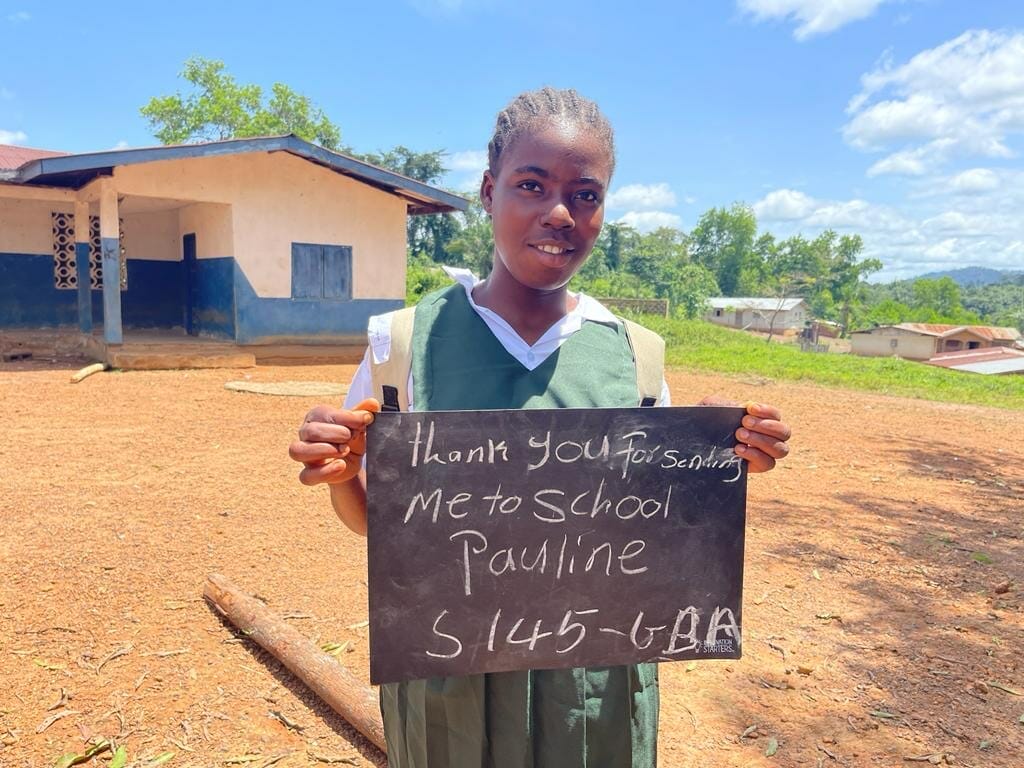 thank you For Sending
Me to School
Pauline
S145-GBA
STARTERS